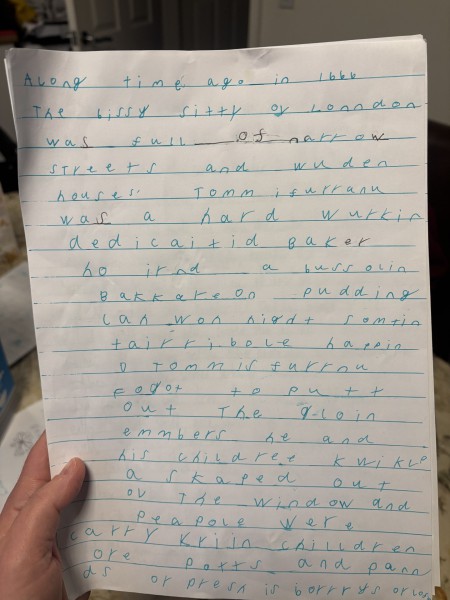 A Long time ago in 1666
The bissy sitty of Lonndon
was full of narrow
streets and wuden
houses. Tomm isurranu
was a hard wurkin
dedicaitid Baker
ho irnd a bussolin
Bakkare on pudding
Lan won nigdt somtin
tairribole happin
Tommis furrnu
Fogot to putt
out The gloin
emmbers he and
his childrer kwikle
a skaped out
ov The window and
peapole were
carry Kriin chilldren
ore potts and pann
ds or presh is borrrys or